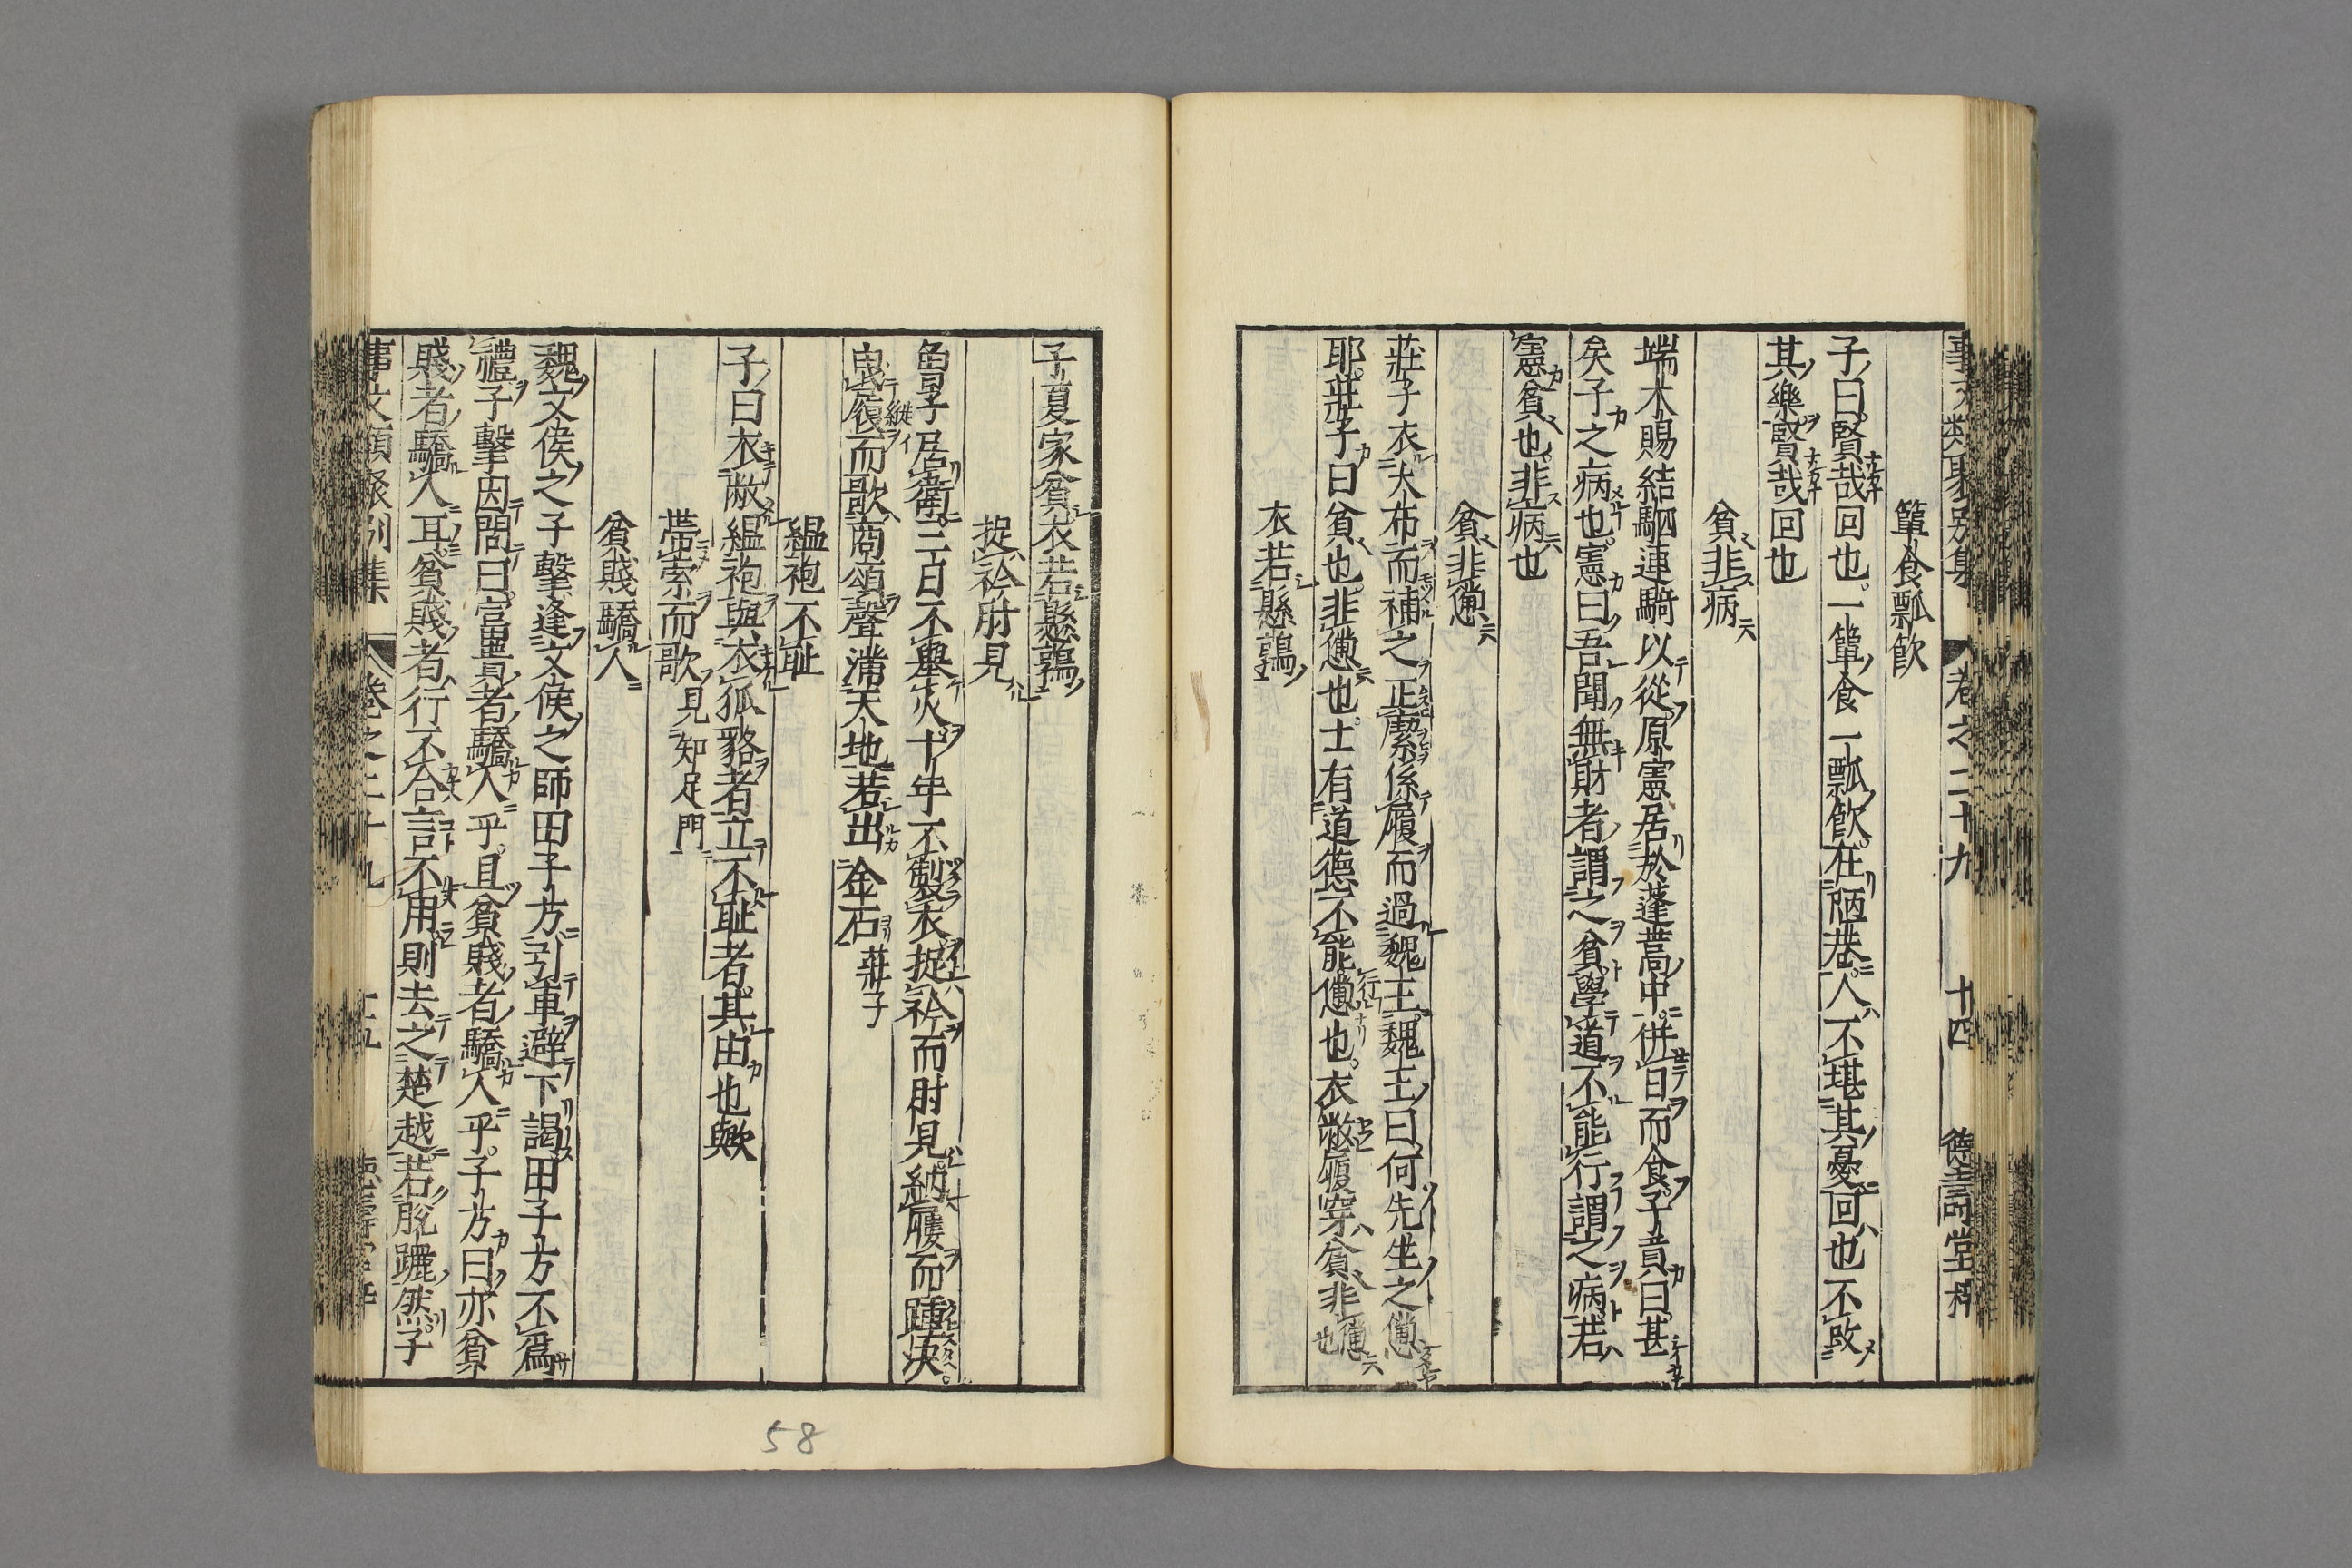 事文類聚別集 卷之二十九 十四 德壽堂梓
簞食瓢飲
子曰賢哉回也一簞食一瓢飲在陋巷人不堪其憂回也不改
其樂賢哉回也
貧非病
端木賜結駟連騎以從原憲居於蓬蒿中併日而食子貢曰甚
矣子之病也憲曰吾聞無財者謂之貧學道不能行謂之病若
憲貧也非病也
貧非憊
莊子衣大布而補之正緳係履而過魏王魏王曰何先生之憊
耶莊子曰貧也非憊也士有道德不能憊也衣弊履穿貧非憊也
衣若懸鶉
子夏家貧衣若懸鶉
捉衿肘見
曾子居衛三日不舉火十年不製衣捉衿而肘見納屨而踵決
曳履而歌商頌聲滿天地若出金石莊子
縕袍不恥
子曰衣敝縕袍與衣狐貉者立不恥者其由也歟
帶索而歌見知足門
貧賤驕人
魏文侯之子擊逢文侯之師田子方引車避下謁田子方不爲
禮子擊因問曰富貴者驕人乎且貧賤者驕人乎子方曰亦貧
賤者驕人耳貧賤者行不合言不用則去之楚越若脫躧然子
事文類聚別集 卷之二十九
58